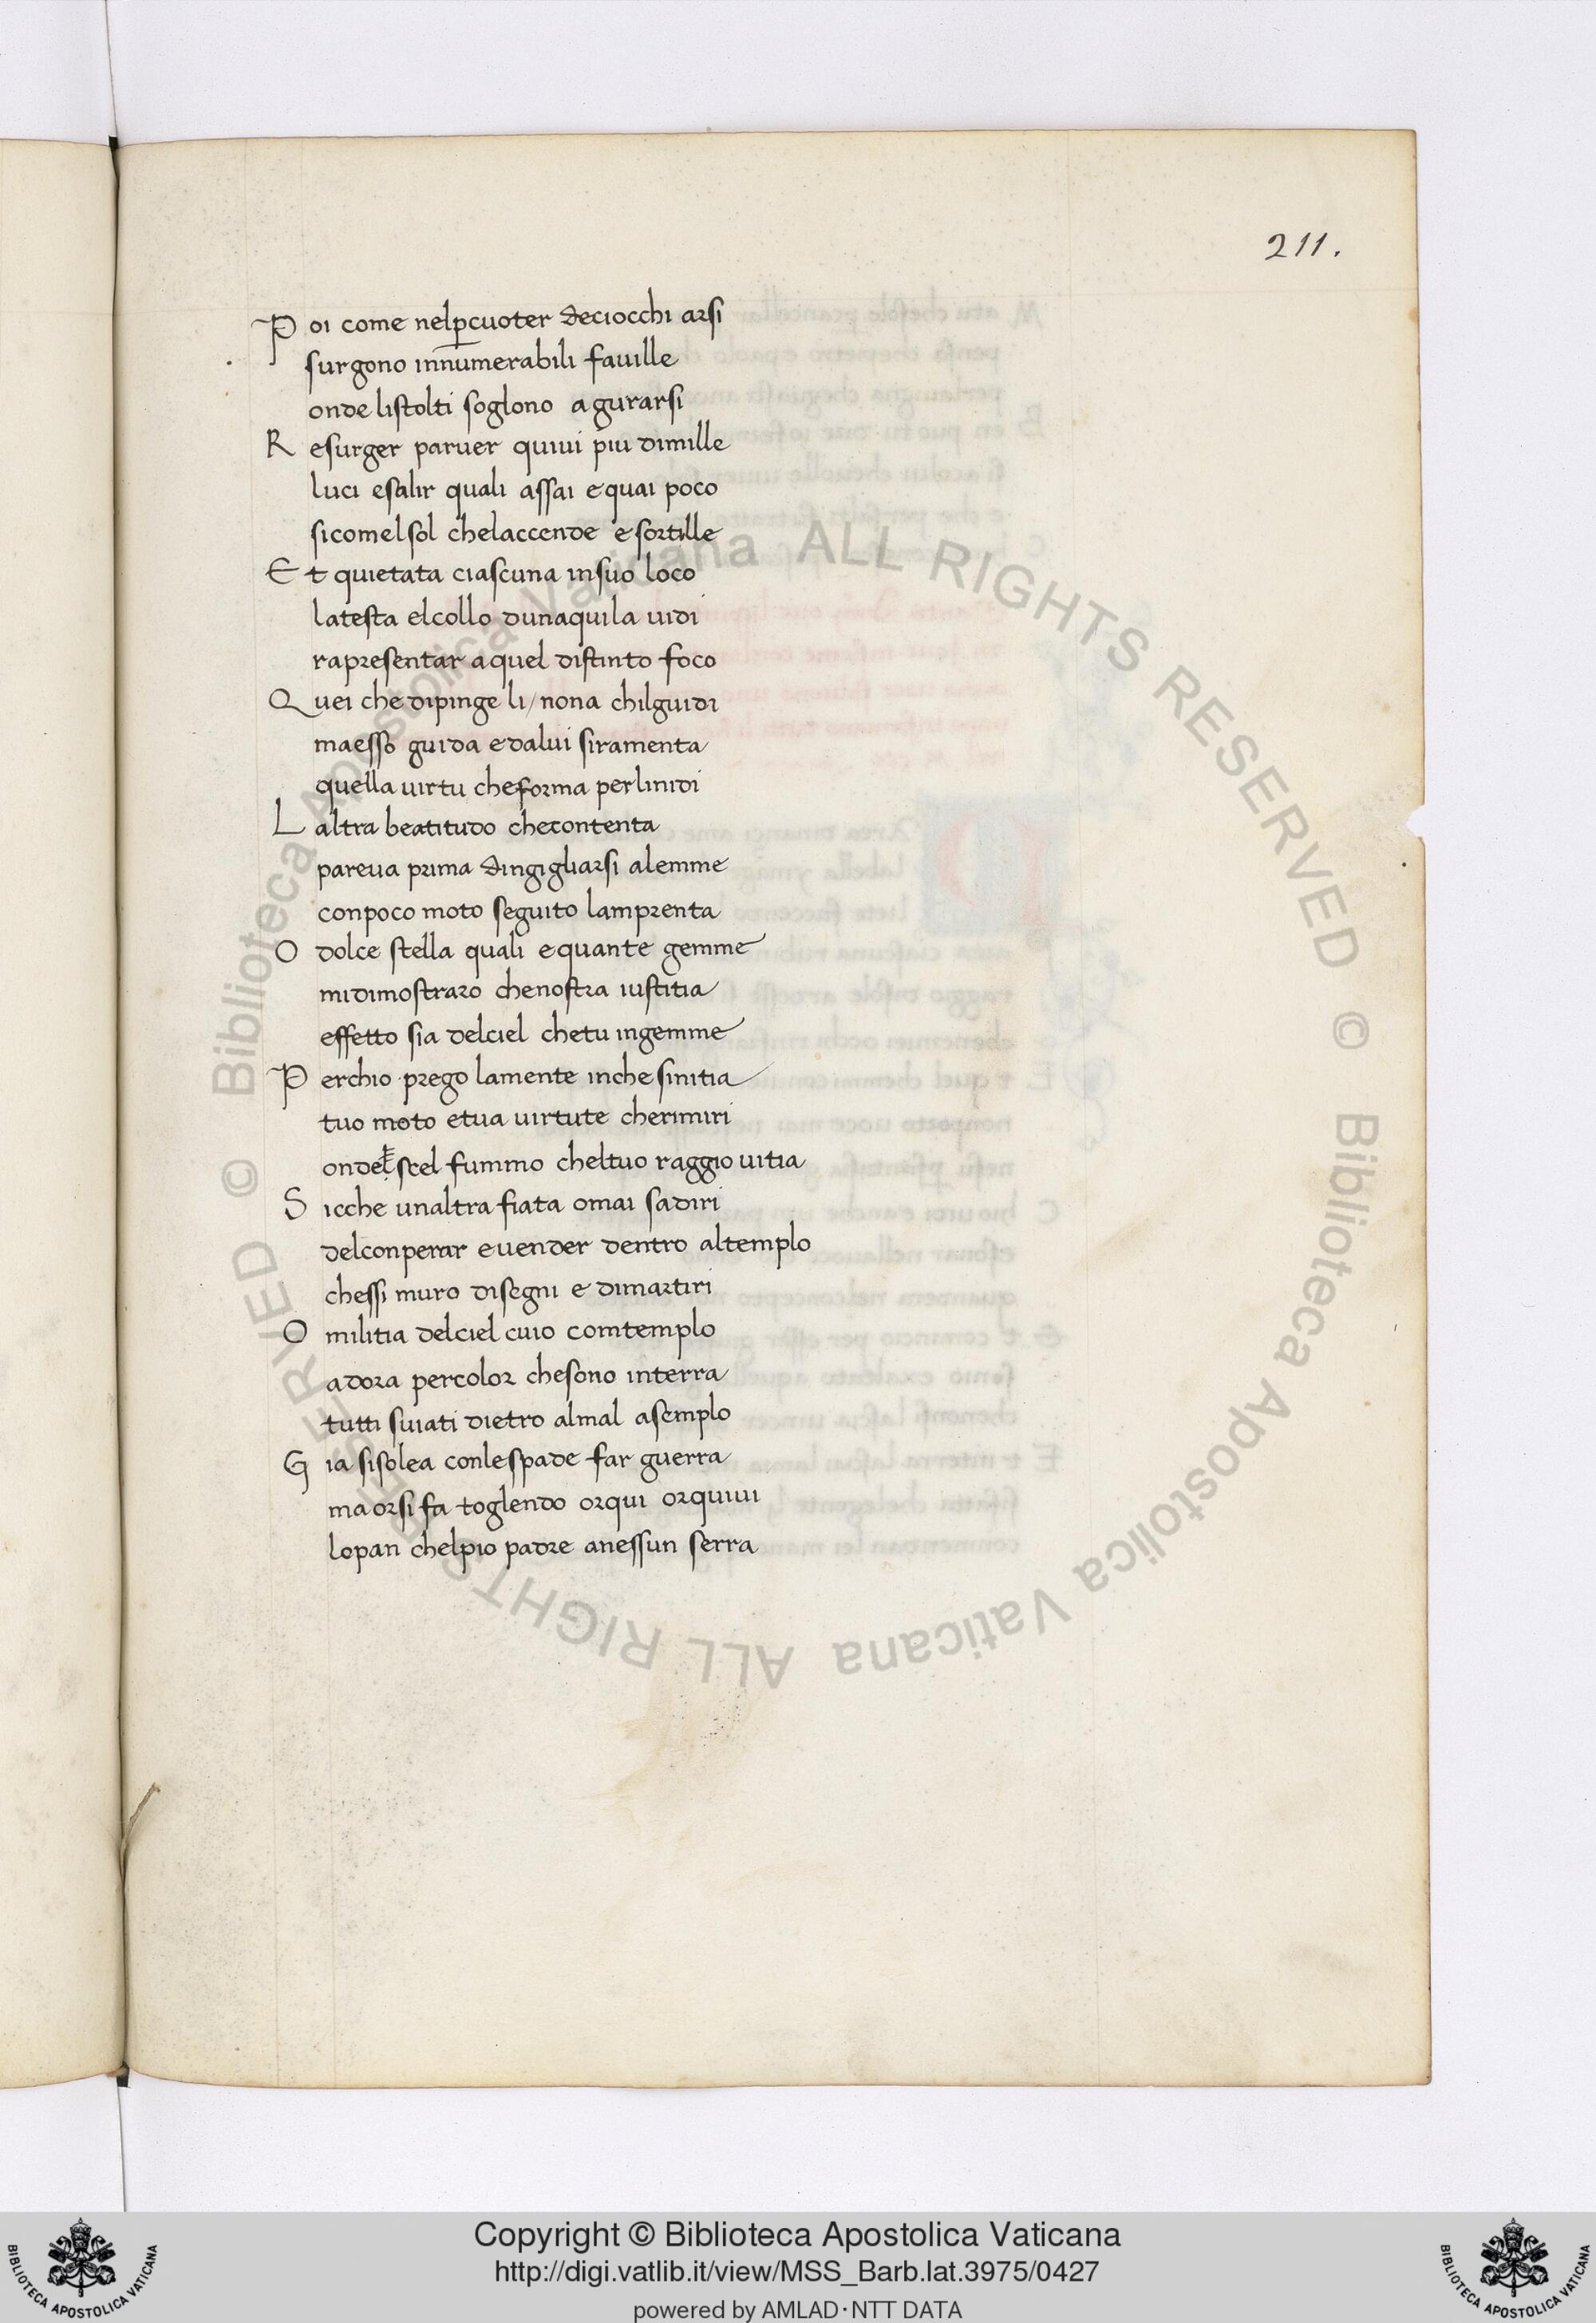 211.
P oi come nelꝑcuoter deciocchi arsi
surgono innumerabili fauille
onde listolti soglono agurarsi
R esurger paruer quiui piu dimille
luci esalir quali assai equai poco
sicomelsol chelaccende esortille
E t quietata ciascuna insuo loco
latesta elcollo dunaquila uidi
rapresentar aquel distinto foco
Q uei che dipinge li/nona chilguidi
maesso guida edalui siramenta
quella uirtu cheforma perlinidi
L altra beatitudo checontenta
pareua prima dingigliarsi alemme
conpoco moto seguito lamprenta
O dolce stella quali equante gemme
midimostraro chenostra iustitia
effetto sia delciel chetu ingemme
P erchio prego lamente inche sinitia
tuo moto etua uirtute cherimiri
scel fummo cheltuo raggio uitia
S icche unaltra fiata omai sadiri
delconperar euender dentro altemplo
chessi muro disegni e dimartiri
O militia delciel cuio comtemplo
adora percolor chesono interra
tutti suiati dietro almal asemplo
G ia sisolea conlespade far guerra
ma orsi fa toglendo orqui orquiui
lopan chelpio padre anessun serra
© Biblioteca Apostolica Vaticana ALL RIGHTS RESERVED © Biblioteca Apostolica Vaticana ALL RIGHTS RESERVED
Copyright © Biblioteca Apostolica Vaticana
http://digi.vatlib.it/view/MSS_Barb.lat.3975/0427
powered by AMLAD·NTT DATA
BIBLIOTECA APOSTOLICA VATICANA
BIBLIOTECA APOSTOLICA VATICANA